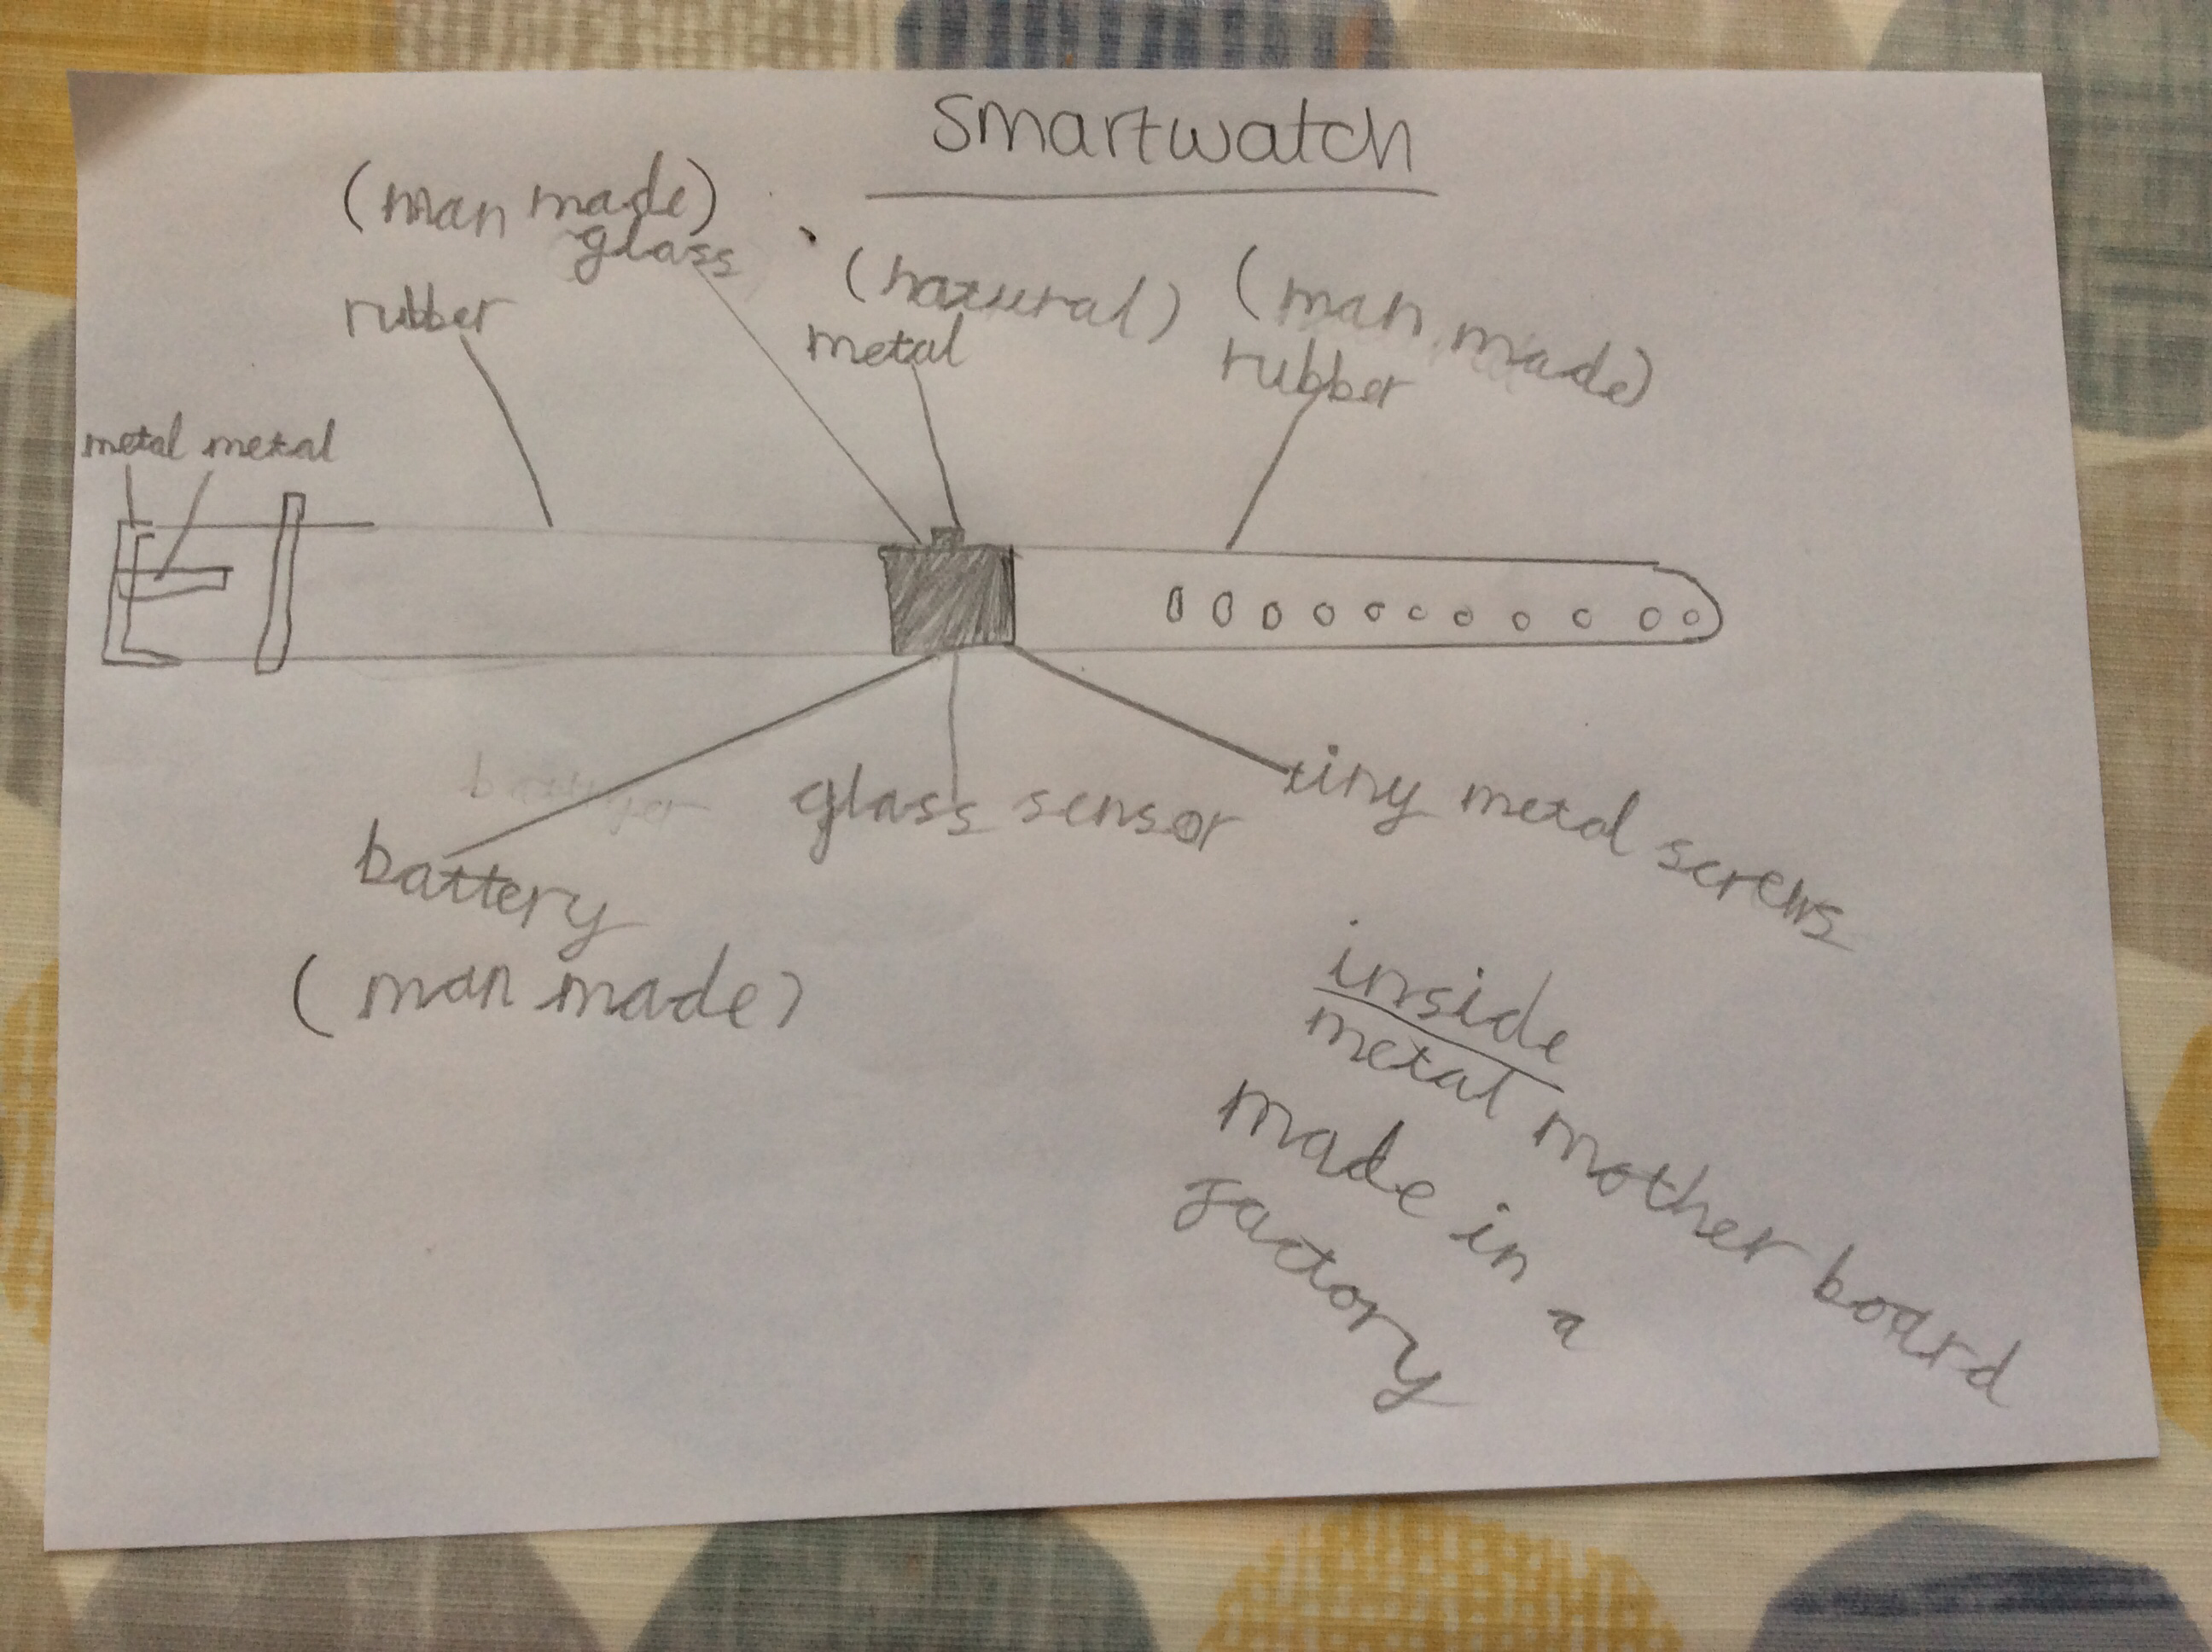 smartwatch
(man made)
glass
(natural)
(man made)
rubber
metal
rubber
metal metal
glass sensor
tiny metal screws
battery
(man made)
inside
metal mother board
made in a
factory